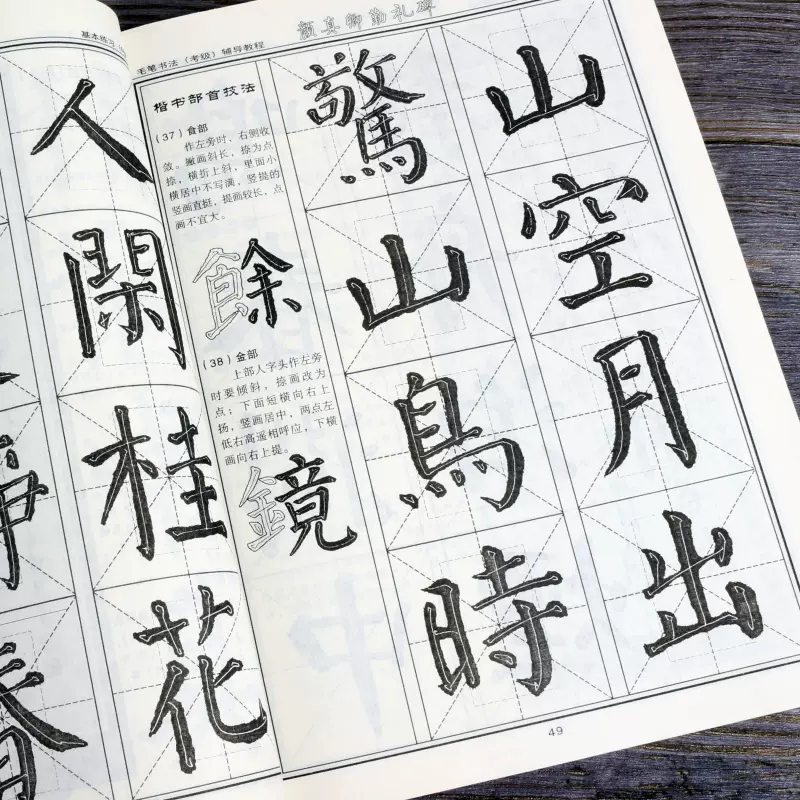 基本练习
人閑桂花
春
毛笔书法（考级）辅导教程
颜真卿勤礼碑
山空月出
驚山鳥時
楷书部首技法
（37）食部
作左旁时，右侧收
敛。撇画斜长，捺为点
捺，横折上斜，里面小
横居中不写满，竖提的
竖画直挺，提画较长，点
画不宜大。
餘
（38）金部
上部人字头作左旁
时要倾斜，捺画改为
点；下面短横向右上
扬，竖画居中，两点左
低右高遥相呼应，下横
画向右上提。
鏡
49